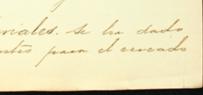 riales. se ha dado
ntes para el cercado